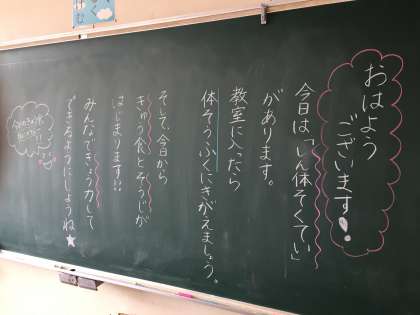 おはよう
ございます！
今日は「しん体そくてい」
があります。
教室に入ったら
体そうふくにきがえましょう。
そして、今日から
きゅう食とそうじが
はじまります!!
みんなできょう力して
できるようにしようね★